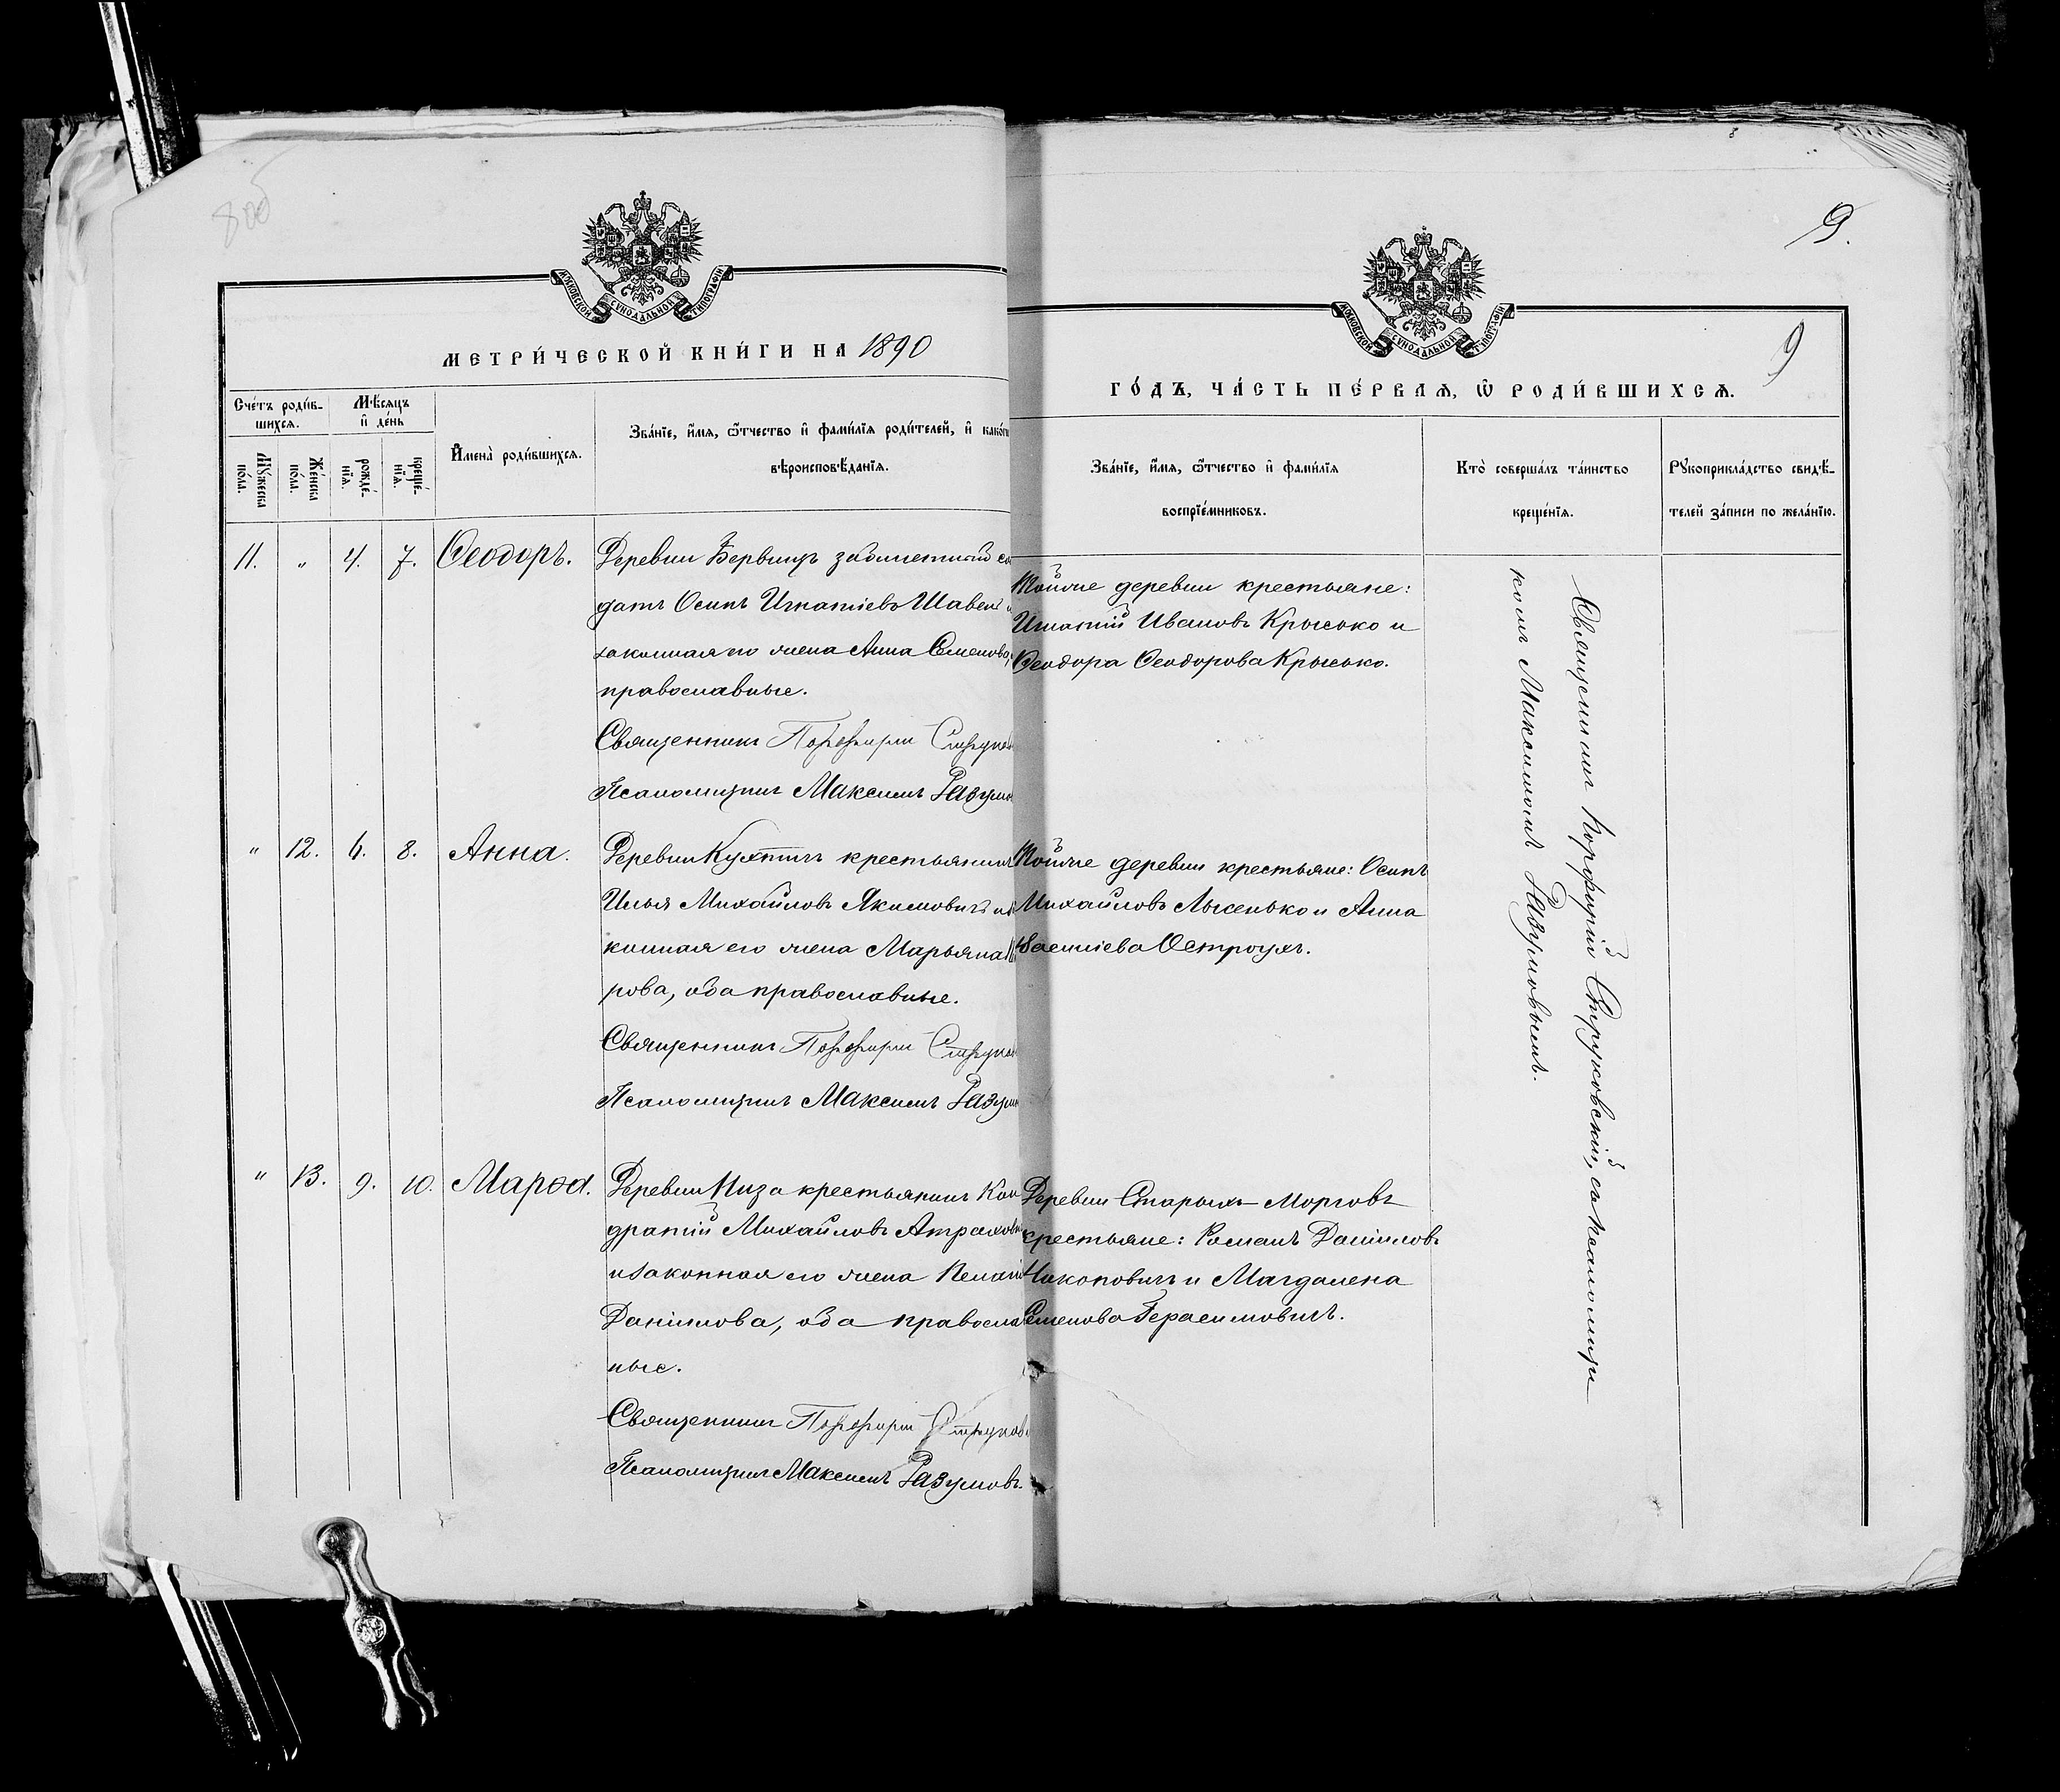 8об
МОСКОВСКОЙ СѴНОДАЛЬНОЙ ТИПОГРАФІИ
МЕТРИ́ЧЕСКОЙ КНИ́ГИ НА 1890
Сче́тъ роди́в-
шихсѧ.
Мѣ́сѧцъ
и҆ де́нь
Мꙋ́жеска
по́ла.
Же́нска
по́ла.
рожде́-
нїѧ.
креще́-
нїѧ.
И҆мена̀ роди́вшихсѧ.
Зва́нїе, и҆́мѧ, ѻ҆́тчество и҆ фами́лїѧ роди́телей, и҆ како́гѡ
вѣроисповѣ́данїѧ.
11. „ 4. 7. Ѳеодоръ.
Деревни Бервищъ забилетный сол
датъ Осипъ Игнатіевъ Шавель и
законная его жена Анна Семенова,
православные.
Священникъ Порфирій Струков
Псаломщикъ Максимъ Разумо
„ 12. 6. 8. Анна.
Деревни Кухтичъ крестьянинъ
Илья Михайловъ Якимовичъ и за
конная его жена Марьяна
рова, оба православные.
Священникъ Порфирій Струков
Псаломщикъ Максимъ Разум
„ 13. 9. 10. Марѳа.
Деревни Низа крестьянинъ Кон
дратій Михайловъ Атрахови
и законная его жена Пелагія
Даніилова, оба православ
ные.
Священникъ Порфирій Струков
Псаломщикъ Максимъ Разумовъ.
9.
9
МОСКОВСКОЙ СѴНОДАЛЬНОЙ ТИПОГРАФІИ
ГО́ДЪ, ЧА́СТЬ ПЕ́РВАѦ, Ѡ҆ РОДИ́ВШИХСѦ.
Зва́нїе, и҆́мѧ, ѻ҆́тчество и҆ фами́лїѧ
воспрїе́мниковъ.
Кто̀ соверша́лъ та́инство
креще́нїѧ.
Рꙋкоприкла́дство свидѣ́-
телей за́писи по жела́нїю.
Тойже деревни крестьяне:
Игнатій Ивановъ Крысько и
Ѳеодора Ѳеодорова Крысько.
Тойже деревни крестьяне: Осипъ
Михайловъ Лысенько и Анна
Васильева Остроухъ.
Деревни Старыхъ-Морговъ
крестьяне: Романъ Даніиловъ
Чаконовичъ и Магдалена
Семенова Герасимовичъ.
Священникъ Порфирій Струковскій, съ псаломщи-
комъ Максимомъ Разумовымъ.